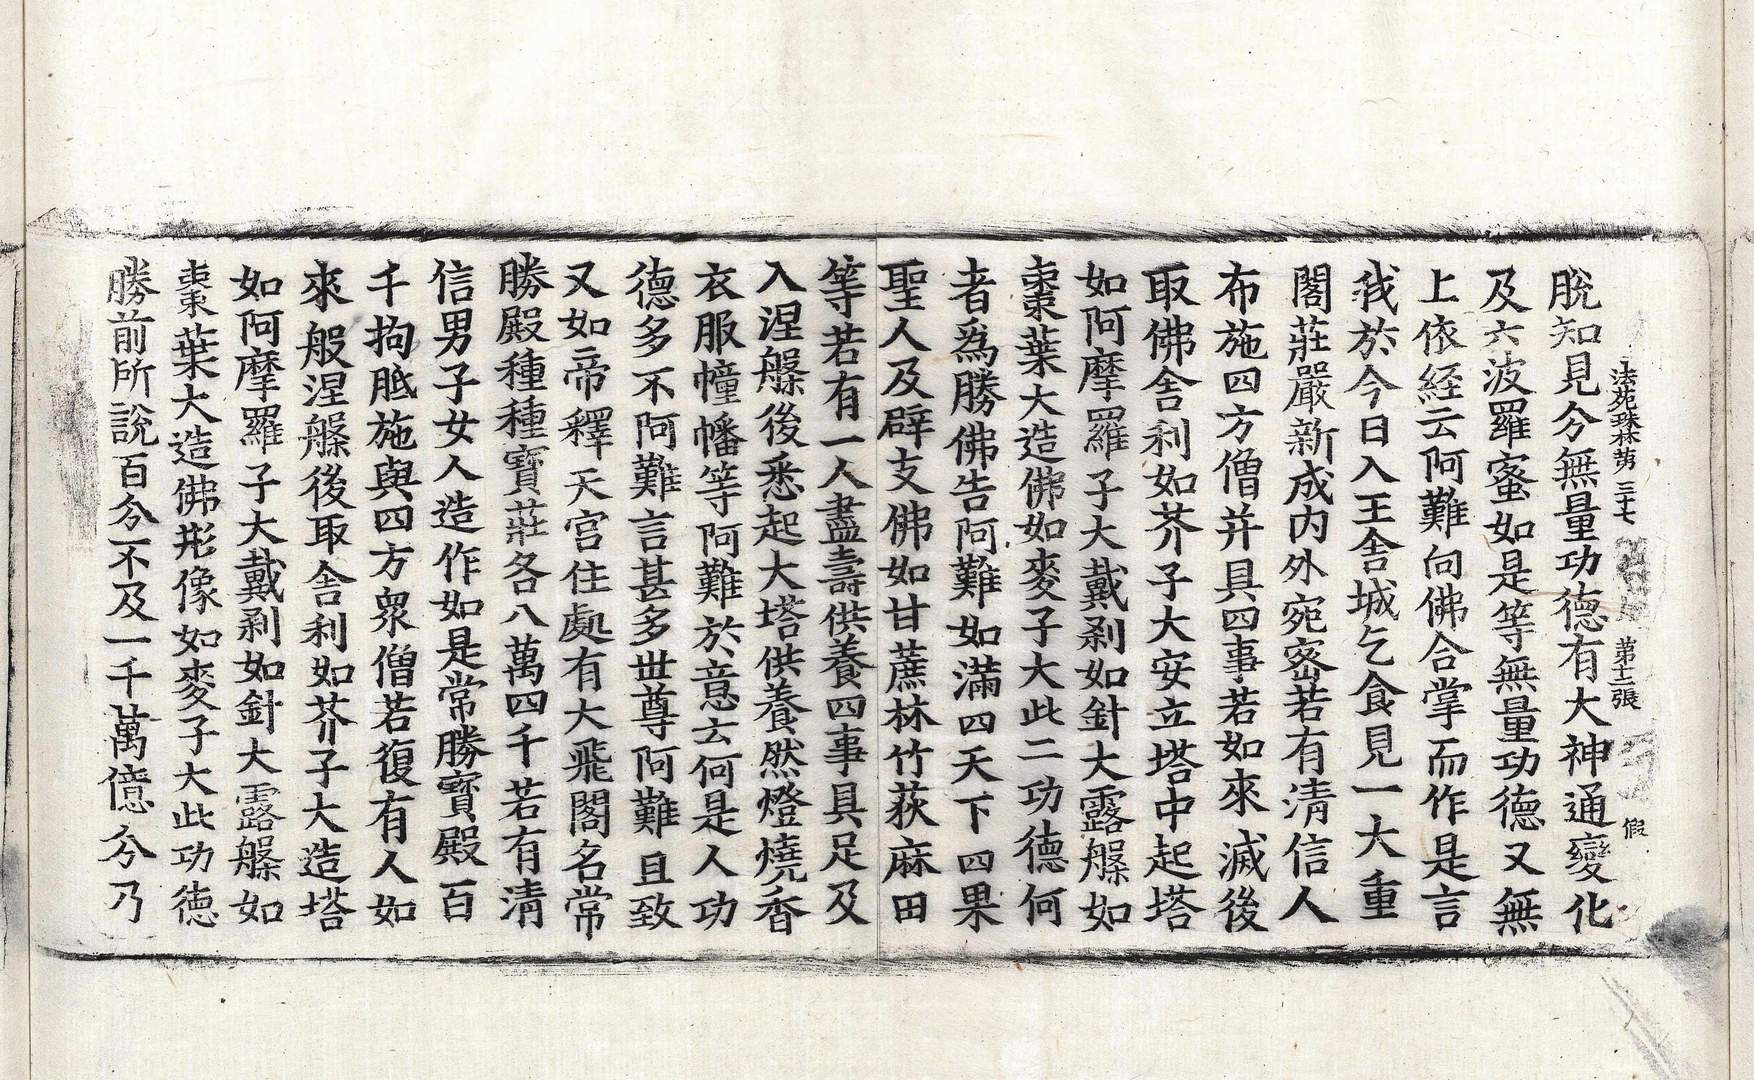 法苑珠林苐三十七 第十二張 假
脫知見分無量功德有大神通變化
及六波羅蜜如是等無量功德又無
上依經云阿難向佛合掌而作是言
我於今日入王舍城乞食見一大重
閣莊嚴新成內外宛密若有清信人
布施四方僧并具四事若如來滅後
取佛舍利如芥子大安立塔中起塔
如阿摩羅子大戴剎如針大露槃如
棗葉大造佛如麥子大此二功德何
者爲勝佛告阿難如滿四天下四果
聖人及辟支佛如甘蔗林竹荻麻田
等若有一人盡壽供養四事具足及
入涅槃後悉起大塔供養然燈燒香
衣服幢幡等阿難於意云何是人功
德多不阿難言甚多世尊阿難且致
又如帝釋天宮住處有大飛閣名常
勝殿種種寶莊各八萬四千若有清
信男子女人造作如是常勝寶殿百
千拘胝施與四方眾僧若復有人如
來般涅槃後取舍利如芥子大造塔
如阿摩羅子大戴剎如針大露槃如
棗葉大造佛形像如麥子大此功德
勝前所說百分不及一千萬億分乃